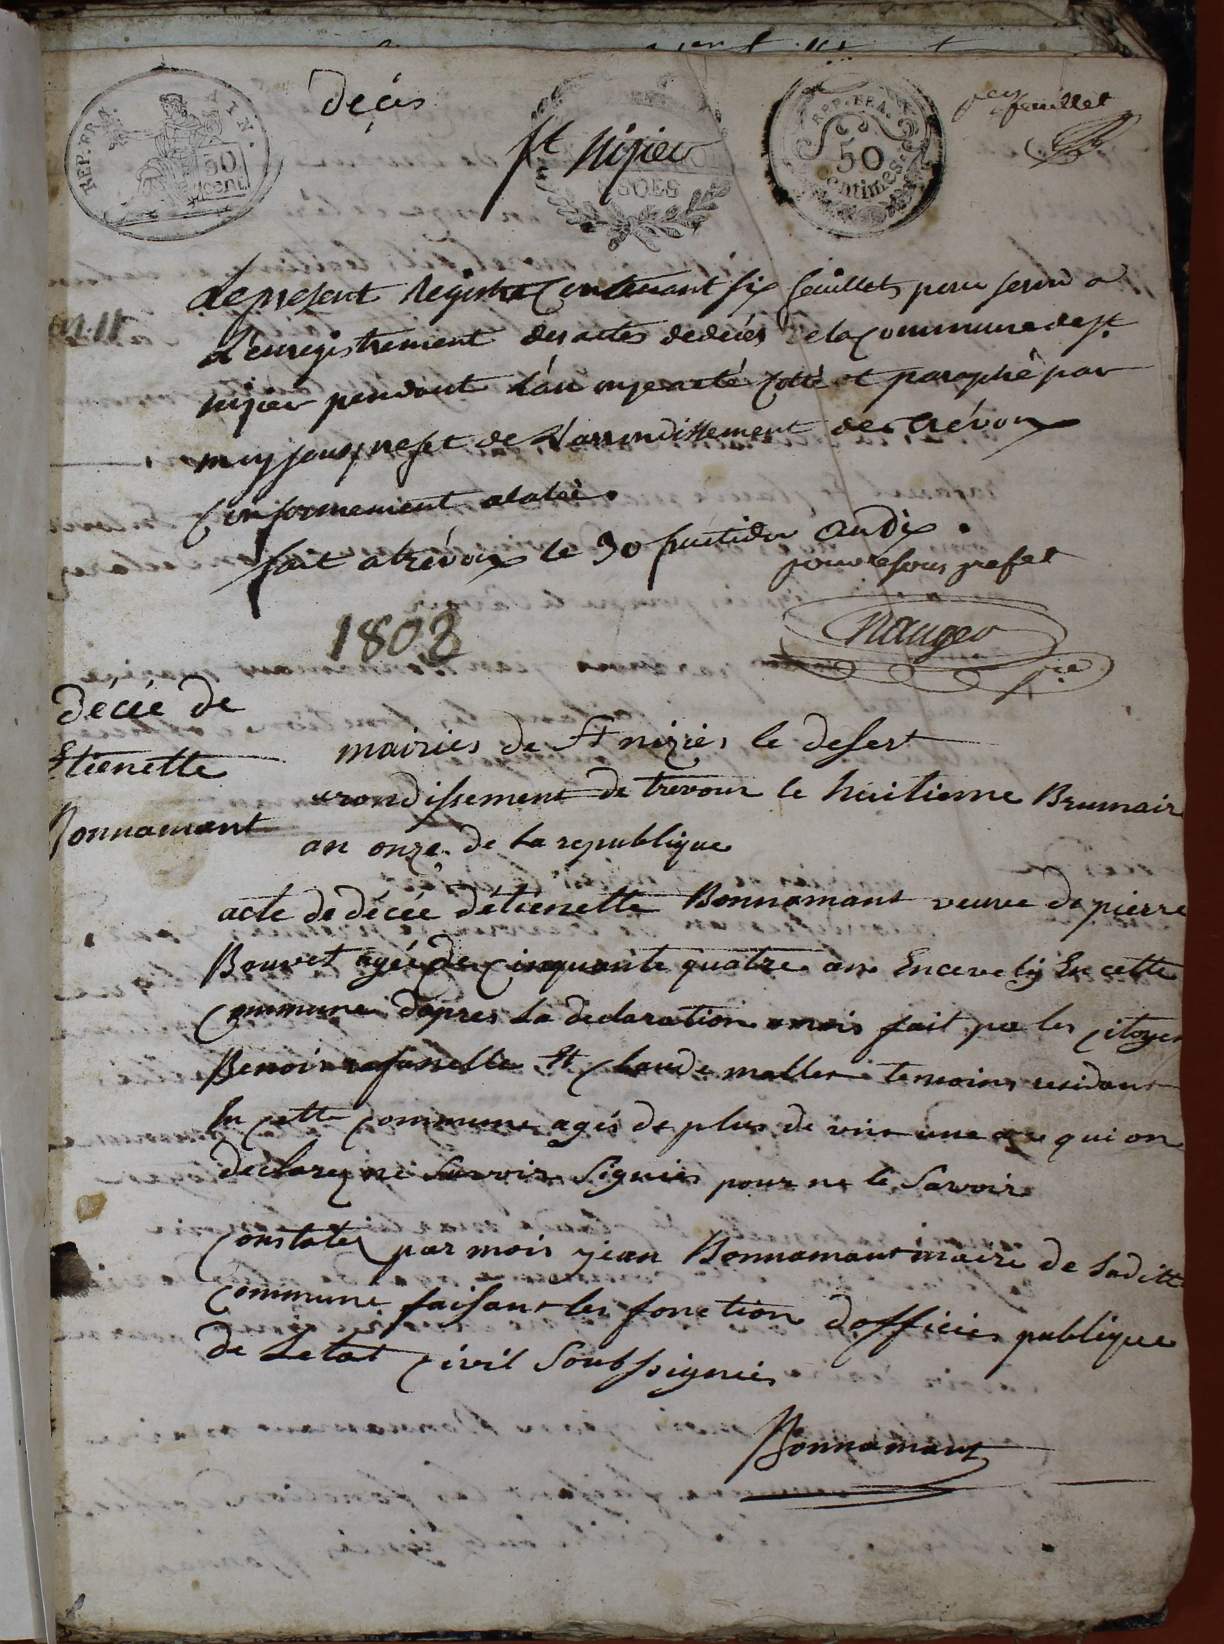 REP. FRA.
50
cent.
decès
St nizier
REP. FRA.
50
centimes
per feuillet
Le present Registre Contenant six feuillets pour servir a
L'enregistrement des actes de decès de la Commune de st
nizier pendant l'an onze a eté cotté et paraphé par
moy sous prefet de L'arrondissement de trévoux
Conformement a la loi.
fait a trévoux le 30 fructidor an dix.
pour le sous prefet
1802
an 11
décée de
Etienette
Bonnamant
mairies de St nizies le desert
arondissement de trevoux le huitieme Brumair
an onze de la republique
acte de décée détienette Bonnamant veuve de pierre
Bouvet agée de Cinquante quatre ans Encevely En cette
Commune dapres la declaration a mois fait par les Citoyen
Benoi rafanelle Et Claude mallet temoins residant
En cette Commune agés de plus de vint une ans qui on
declarez ne Savoir Signiés pour ne le Savoir
Constatés par mois jean Bonnamant maire de laditte
Commune faisant les fonction dofficies publique
de Letat Civil Soubsigniés
Bonnamant